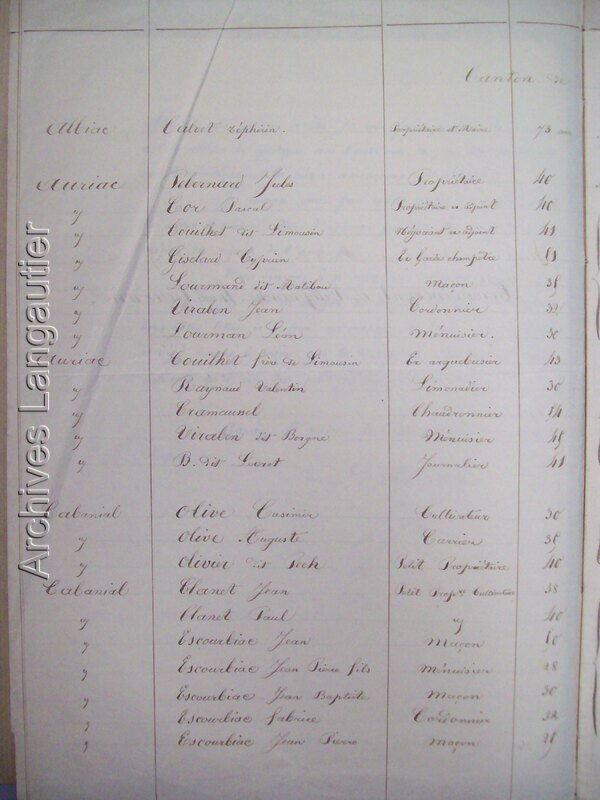 Canton de
Albiac Calvet Zéphirin. Propriétaire et Maire 73 ans
Auriac Jules Propriétaire 40
y Cor Pascal Propriétaire et adjoint 40
y Couilhet dit Limousin Négociant et adjoint 41
y Gisclard Cyprien Ex Garde champêtre 51
y Lourmand dit Matibou Maçon 35
y Viraben Jean Cordonnier 32
y Lourman Léon Ménuisier. 30
Auriac Couilhet frère de Limousin Ex arquebusier 43
y Raynaud Valentin Limonadier 30
y Cramaussel Chaudronnier 54
y Viraben dit Borgne Ménuisier 45
y B. dit Journalier 41
Cabanial Olive Casimir Cultivateur 30
y Olive Auguste Carrier 35
y Olivier dit Pech Petit Propriétaire 40
Cabanial Clanet Jean Petit Prop.re Cultivateur 38
y Clanet Paul y 40
y Escourbiac Jean Maçon 50
y Escourbiac Jean Pierre fils Ménuisier 28
y Escourbiac Jean Baptiste Maçon 30
y Escourbiac fabrice Cordonnier 32
y Escourbiac Jean Pierre Maçon 25
Archives Langautier